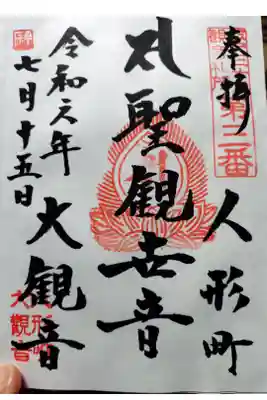 第三番
奉拝
人形町
聖観世音
大観音
令和元年
七月十五日
大觀音